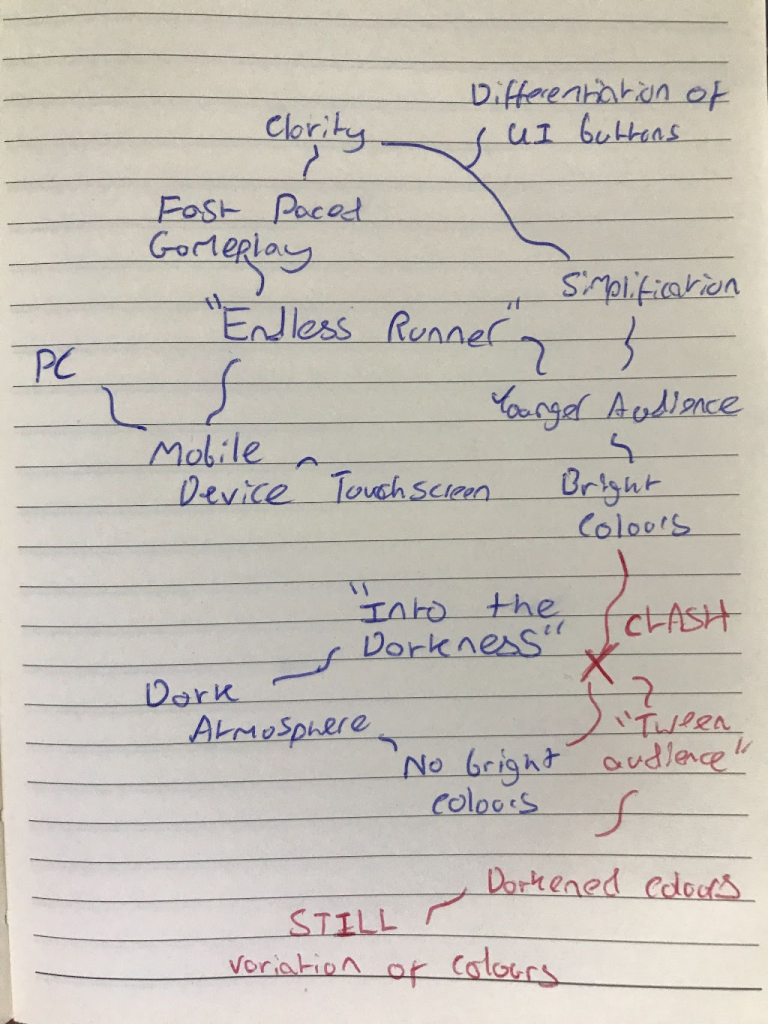 Differentiation of
UI buttons
Clarity
Fast Paced
Gameplay
Simplification
"Endless Runner"
PC
Younger Audience
Mobile
Device
Touchscreen
Bright
Colours
"Into the
Darkness"
CLASH
Dark
Atmosphere
"Tween
audience"
No bright
colours
Darkened colours
STILL
variation of colours